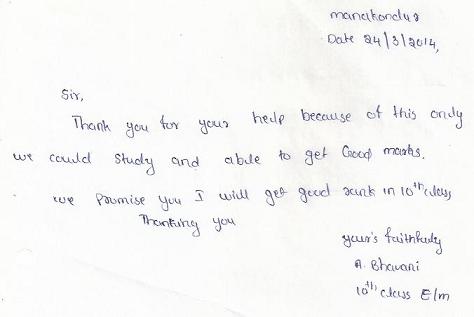 manakondur
Date 24/3/2014,
Sir,
Thank you for your help because of this only
we could study and able to get Good marks.
we Promise you I will get good rank in 10th class
Thanking you
your's faithfully
A. Bhavani
10th class E/m